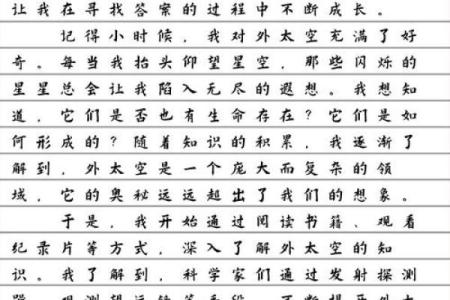 让我在寻找答案的过程中不断成长。
记得小时候，我对外太空充满了好
奇。每当我抬头仰望星空，那些闪烁的
星星总会让我陷入无尽的遐想。我想知
道，它们是否也有生命存在？它们是如
何形成的？随着知识的积累，我逐渐了
解到，外太空是一个庞大而复杂的领
域，它的奥秘远远超出了我们的想象。
于是，我开始通过阅读书籍、观看
纪录片等方式，深入了解外太空的知
识。我了解到，科学家们通过发射探测